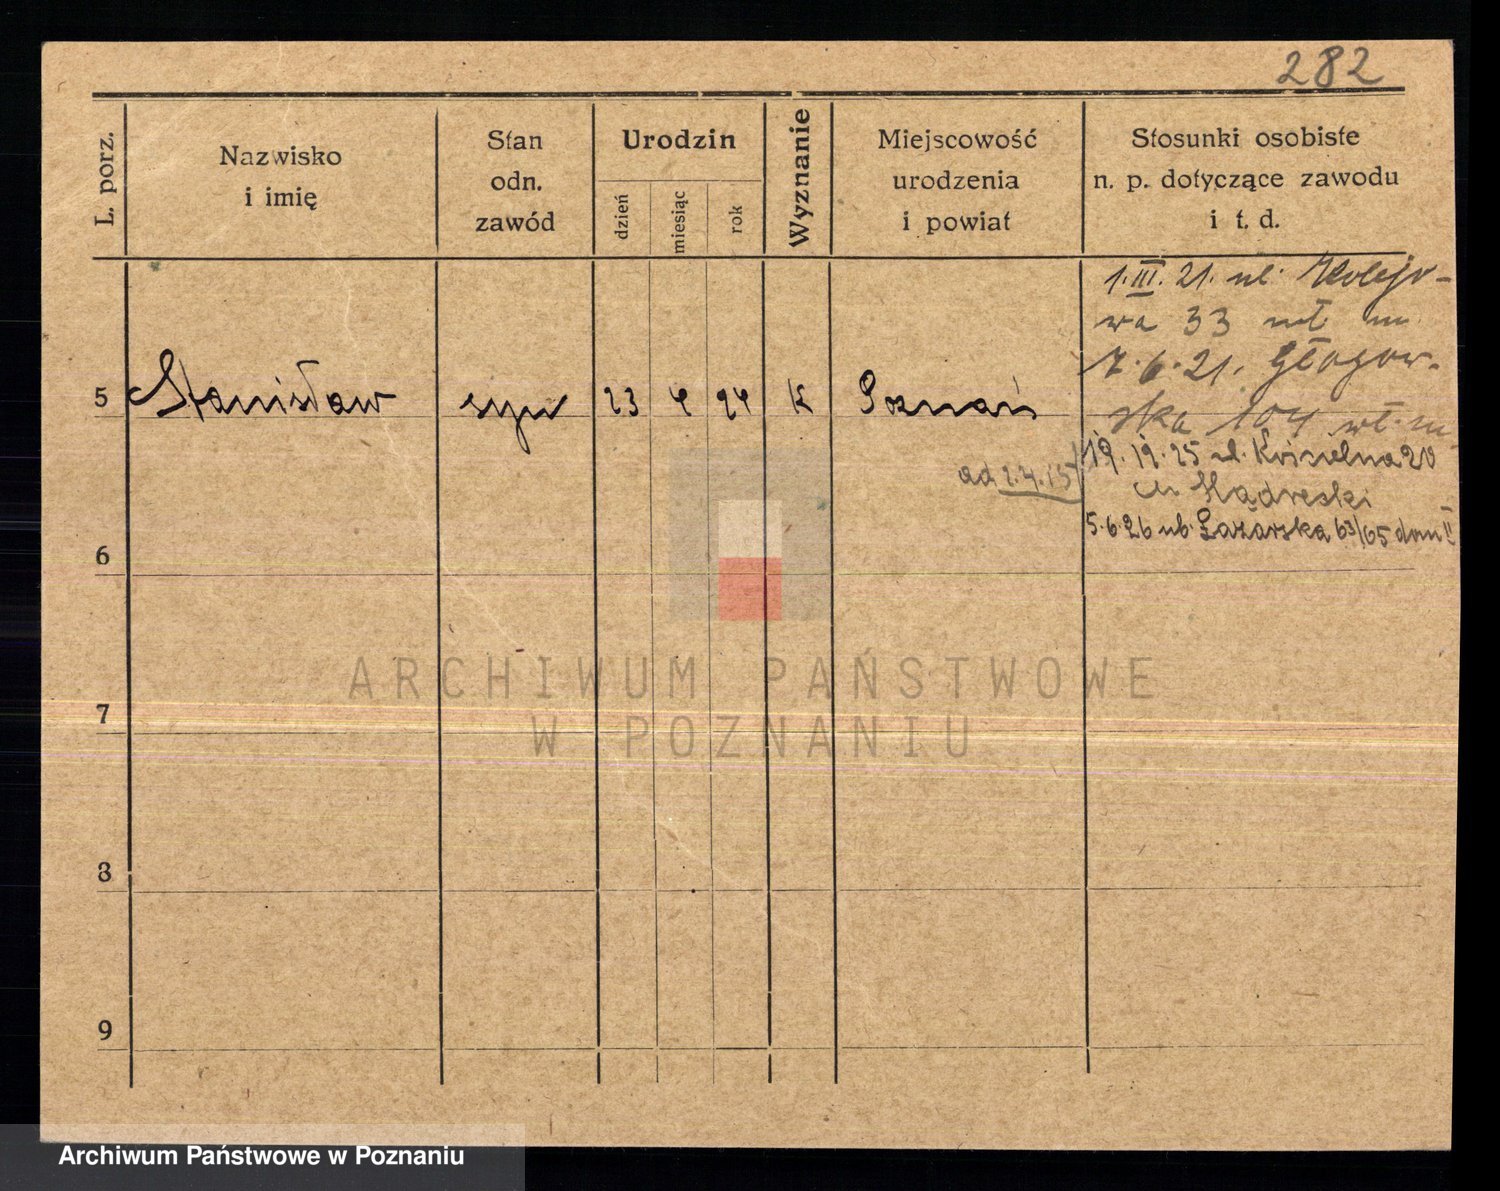 282
L. porz.
Nazwisko
i imię
Stan
odn.
zawód
Urodzin
dzień
miesiąc
rok
Wyznanie
Miejscowość
urodzenia
i powiat
Stosunki osobiste
n. p. dotyczące zawodu
i t. d.
1.III.21. ul. Kolejo-
wa 33 wł. m.
7.6.21. Głogow-
ska 104 wł. m.
5 Stanisław syn 23 4 24 K Poznań
19. 25 ul. Kościelna 20
5.6.26 ul. Łazarska 63/65 dom II
6
7
8
9
ARCHIWUM PAŃSTWOWE
W POZNANIU
Archiwum Państwowe w Poznaniu